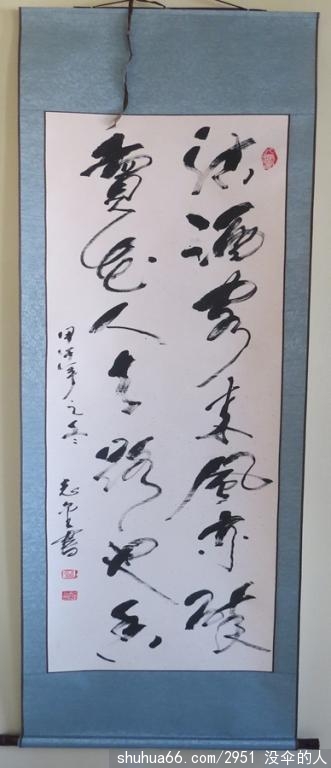 沽酒客来风亦醉
卖花人去路还香
甲午年之冬
志	书
shuhua66.com/2951 没伞的人